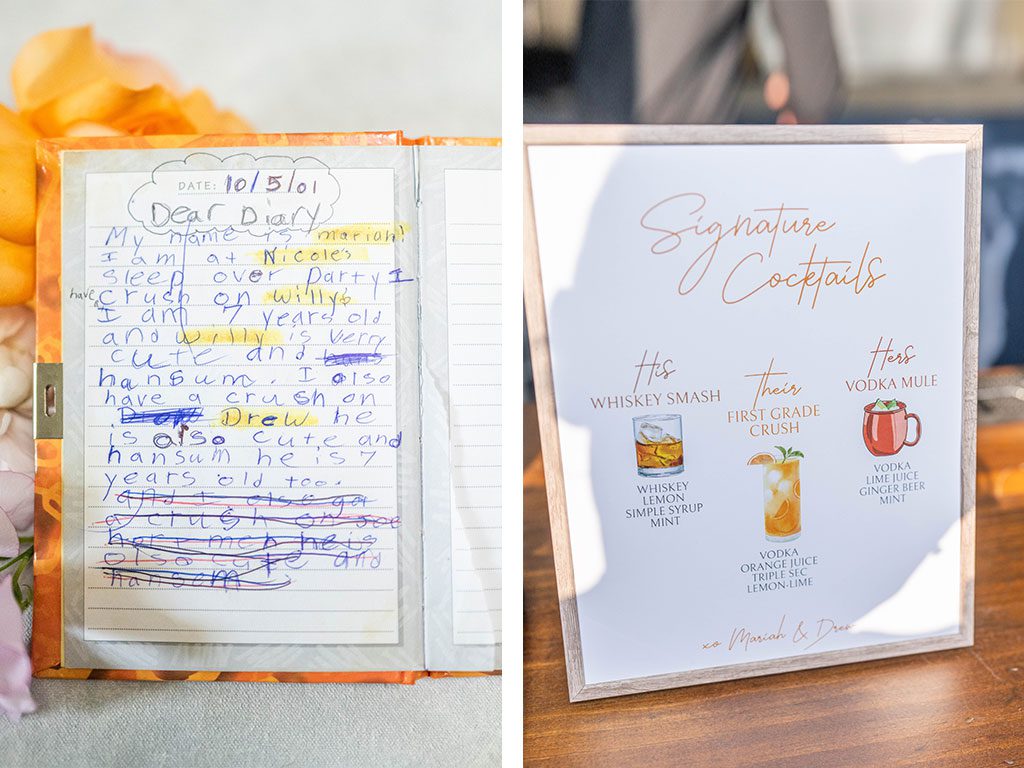 DATE: 10/5/01
Dear Diary
My name is mariah!
I am at Nicole's
sleep over Party I
have crush on willy's
I am 7 years old
and willy is very
cute and
hansum. I also
have a crush on
Drew he
is also cute and
hansum he is 7
years old too.
and I also ga
a crush on soe
her men he is
also cute and
hansem
Signature
Cocktails
His
WHISKEY SMASH
WHISKEY
LEMON
SIMPLE SYRUP
MINT
Their
FIRST GRADE
CRUSH
VODKA
ORANGE JUICE
TRIPLE SEC
LEMON-LIME
Hers
VODKA MULE
VODKA
LIME JUICE
GINGER BEER
MINT
xo Mariah & Drew